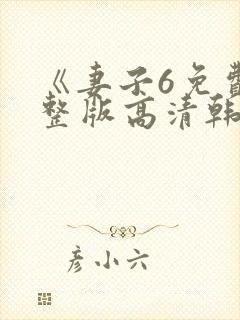 《妻子6免费
整版高清韩
彦小六